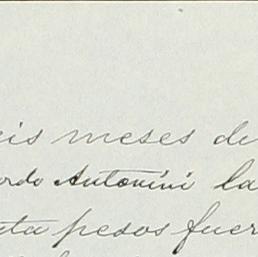 eis meses de
ordo Antonini la
ta pesos fuer